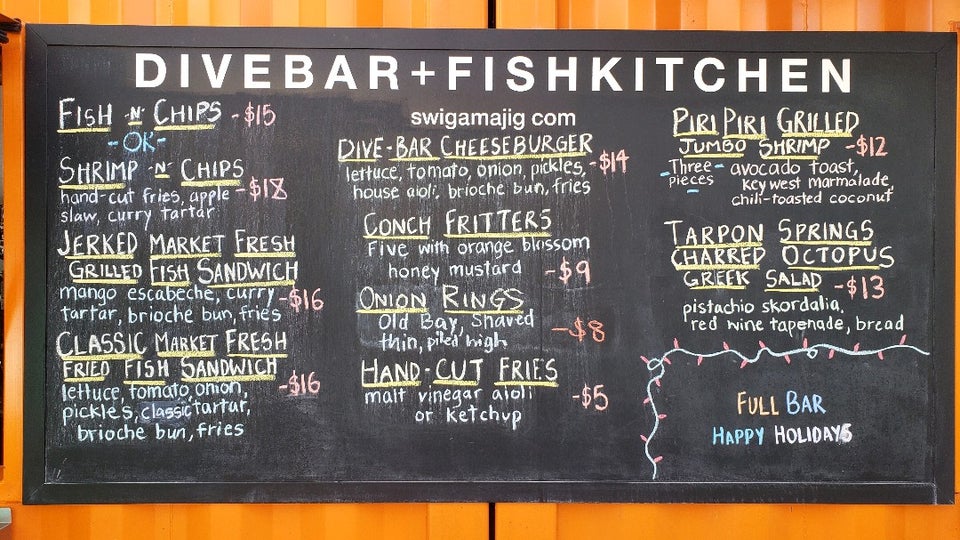 DIVEBAR+FISHKITCHEN
swigamajig com
FISH -N- CHIPS -$15
-OK-
SHRIMP -N- CHIPS
hand-cut fries, apple -$18
slaw, curry tartar
JERKED MARKET FRESH
GRILLED FISH SANDWICH
mango escabeche, curry -$16
tartar, brioche bun, fries
CLASSIC MARKET FRESH
FRIED FISH SANDWICH
lettuce, tomato, onion, -$16
pickles, classic tartar,
brioche bun, fries
DIVE-BAR CHEESEBURGER
lettuce, tomato, onion, pickles, -$14
house aioli, brioche bun, fries
CONCH FRITTERS
Five with orange blossom
honey mustard -$9
ONION RINGS
Old Bay, Shaved
thin, piled high -$8
HAND-CUT FRIES
malt vinegar aioli -$5
or ketchup
PIRI PIRI GRILLED
JUMBO SHRIMP -$12
-Three- avocado toast,
pieces key west marmalade,
chili-toasted coconut
TARPON SPRINGS
CHARRED OCTOPUS
GREEK SALAD -$13
pistachio skordalia,
red wine tapenade, bread
FULL BAR
HAPPY HOLIDAYS